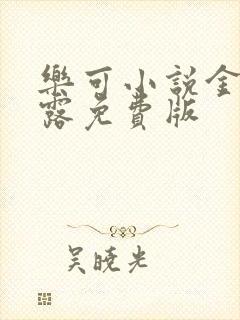 樂可小說金
露免費版
吴曉光